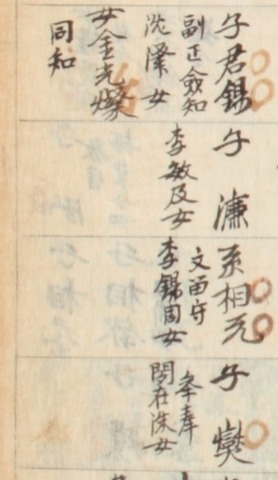 子君錫
副正僉知
沈澤女
女金光燦
同知
子濂
李敏及女
系相元
文面守
李錫周女
子爕
奉奉
閔在洙女